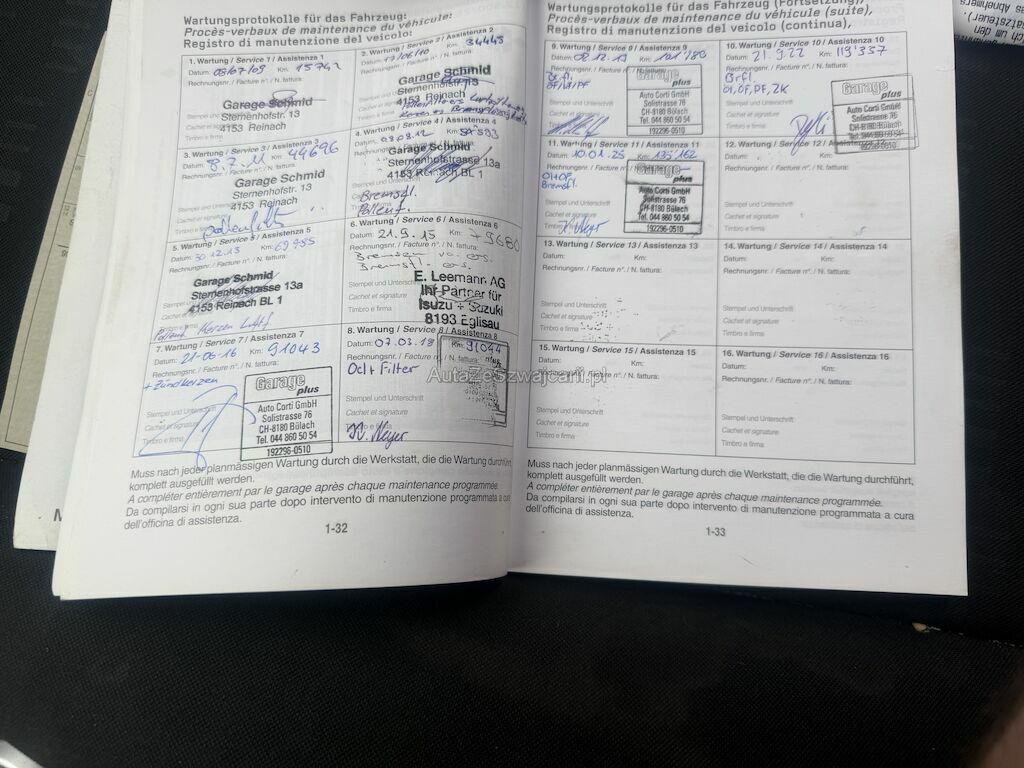 Wartungsprotokolle für das Fahrzeug:
Procès-verbaux de maintenance du véhicule:
Registro di manutenzione del veicolo:
1. Wartung / Service 1 / Assistenza 1
Datum: 03/07/09 Km: 15742
Rechnungsnr. / Facture n°. / N. fattura:
Garage Schmid
Sternenhofstr. 13
4153 Reinach
2. Wartung / Service 2 / Assistenza 2
Km: 34445
Garage Schmid
4153 Reinach
3. Wartung / Service 3 / Assistenza 3
Datum: 8.7.11 Km: 44696
Garage Schmid
Sternenhofstr. 13
4153 Reinach
4. Wartung / Service 4 / Assistenza 4
Garage Schmid
Sternenhofstrasse 13a
4153 Reinach BL 1
Bremsfl.
Pollenf.
5. Wartung / Service 5 / Assistenza 5
Datum: 30.12.13 Km: 69955
Rechnungsnr. / Facture n°. / N. fattura:
Garage Schmid
Sternenhofstrasse 13a
4153 Reinach BL 1
6. Wartung / Service 6 / Assistenza 6
Datum: 21.9.15 Km: 79680
Rechnungsnr. / Facture n°. / N. fattura:
Stempel und Unterschrift
Cachet et signature
Timbro e firma
E. Leemann AG
Ihr Partner für
Isuzu + Suzuki
8193 Eglisau
7. Wartung / Service 7 / Assistenza 7
Datum: 21-06-16 Km: 91043
Rechnungsnr. / Facture n°. / N. fattura:
+ Zündkerzen
Stempel und Unterschrift
Cachet et signature
Timbro e firma
Garage plus
Auto Corti GmbH
Solistrasse 76
CH-8180 Bülach
Tel. 044 860 50 54
192296-0510
8. Wartung / Service 8 / Assistenza 8
Datum: 07.03.18 Km: 91044
Rechnungsnr. / Facture n°. / N. fattura:
Oel + Filter
Stempel und Unterschrift
Cachet et signature
Timbro e firma
Muss nach jeder planmässigen Wartung durch die Werkstatt, die die Wartung durchführt,
komplett ausgefüllt werden.
A compléter entièrement par le garage après chaque maintenance programmée.
Da compilarsi in ogni sua parte dopo intervento di manutenzione programmata a cura
dell'officina di assistenza.
1-32
Wartungsprotokolle für das Fahrzeug (Fortsetzung),
Procès-verbaux de maintenance du véhicule (suite),
Registro di manutenzione del veicolo (continua),
9. Wartung / Service 9 / Assistenza 9
Rechnungsnr. / Facture n°. / N. fattura:
Garage plus
Auto Corti GmbH
Solistrasse 76
CH-8180 Bülach
Tel. 044 860 50 54
192296-0510
10. Wartung / Service 10 / Assistenza 10
Datum: 21.9.22 Km: 119'337
Rechnungsnr. / Facture n°. / N. fattura:
Brfl.
Öl, ÖF, PF, ZK
Stempel und Unterschrift
Cachet et signature
Timbro e firma
Garage plus
Auto Corti GmbH
Solistrasse 76
CH-8180 Bülach
Tel. 044 860 50 54
192296-0510
11. Wartung / Service 11 / Assistenza 11
Datum: 10.01.25 Km: 135'162
Rechnungsnr. / Facture n°. / N. fattura:
Öl+ÖF
Bremsfl.
Cachet et signature
Timbro e firma
Garage plus
Auto Corti GmbH
Solistrasse 76
CH-8180 Bülach
Tel. 044 860 50 54
192296-0510
12. Wartung / Service 12 / Assistenza 12
Datum: Km:
Rechnungsnr. / Facture n°. / N. fattura:
Stempel und Unterschrift
Cachet et signature
Timbro e firma
13. Wartung / Service 13 / Assistenza 13
Datum: Km:
Rechnungsnr. / Facture n°. / N. fattura:
Stempel und Unterschrift
Cachet et signature
Timbro e firma
14. Wartung / Service 14 / Assistenza 14
Datum: Km:
Rechnungsnr. / Facture n°. / N. fattura:
Stempel und Unterschrift
Cachet et signature
Timbro e firma
15. Wartung / Service 15 / Assistenza 15
Datum: Km:
Rechnungsnr. / Facture n°. / N. fattura:
Stempel und Unterschrift
Cachet et signature
Timbro e firma:
16. Wartung / Service 16 / Assistenza 16
Datum: Km:
Rechnungsnr. / Facture n°. / N. fattura:
Stempel und Unterschrift
Cachet et signature
Timbro e firma:
Muss nach jeder planmässigen Wartung durch die Werkstatt, die die Wartung durchführt,
komplett ausgefüllt werden.
A compléter entièrement par le garage après chaque maintenance programmée.
Da compilarsi in ogni sua parte dopo intervento di manutenzione programmata a cura
dell'officina di assistenza.
1-33
AutaZeSzwajcarii.pl